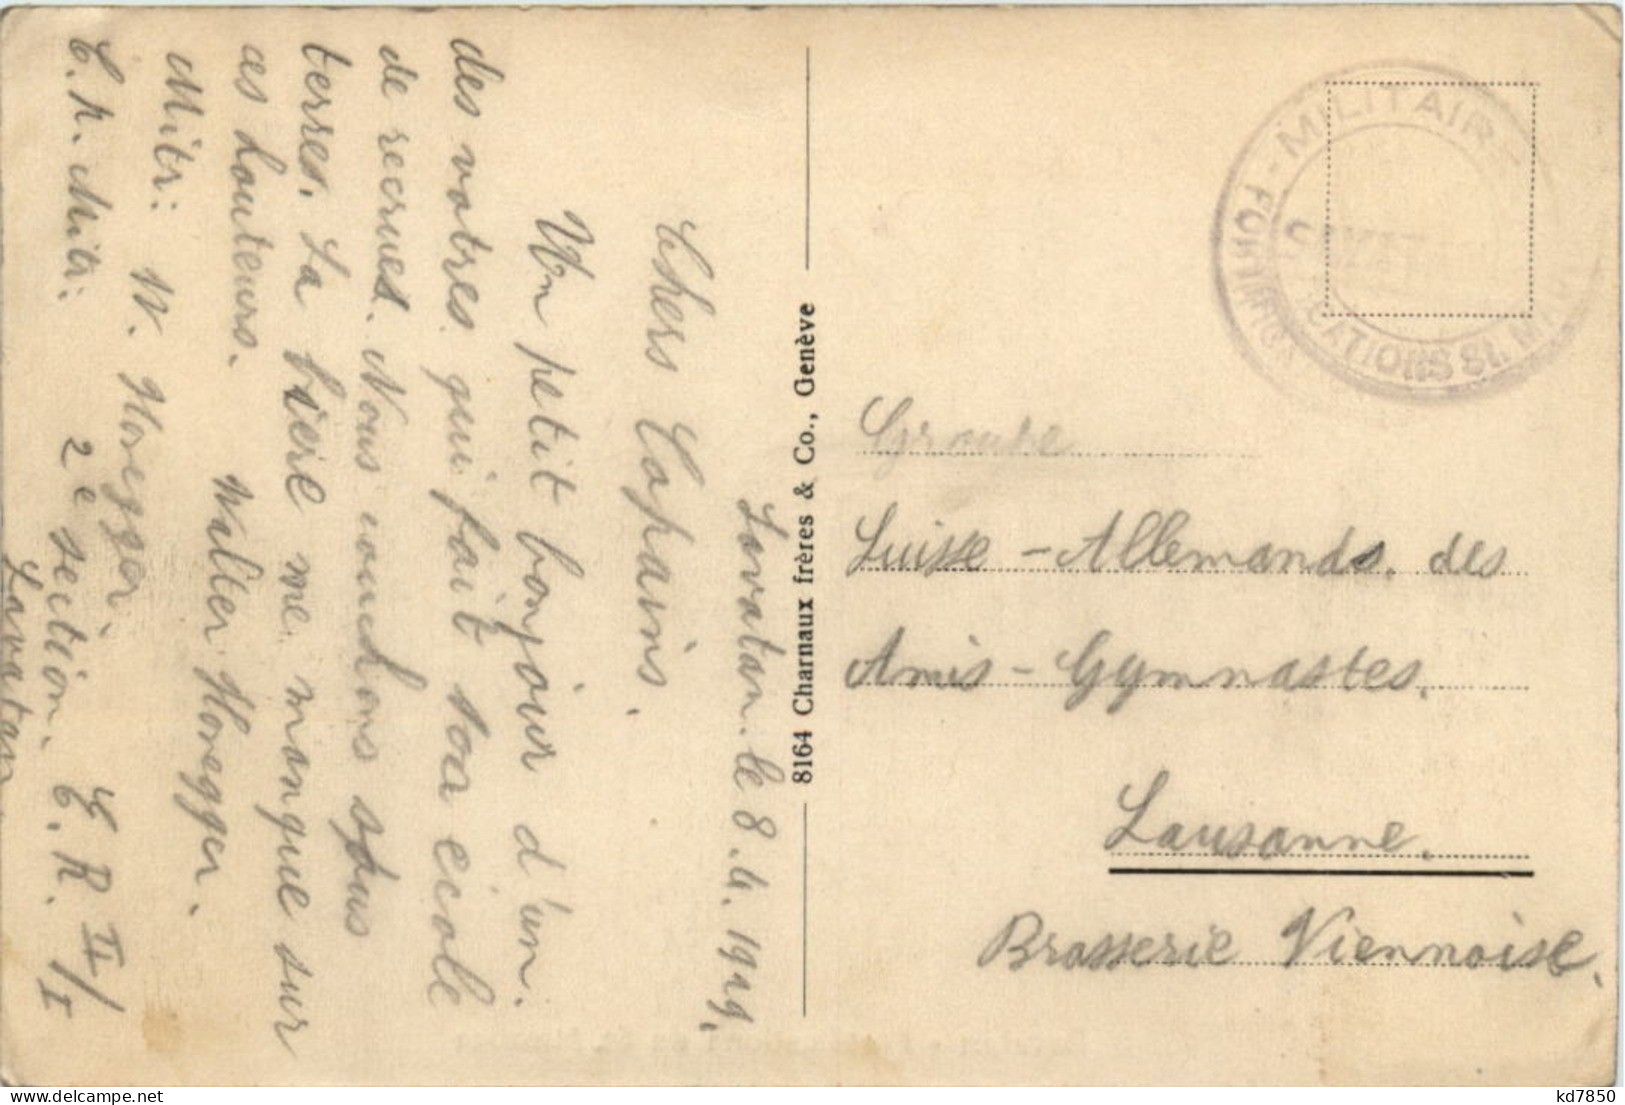 Savatan. le 8.4.1929.
Chers Copains.
Un petit bonjour d'un
des votres qui fait son école
de recrues. Nous couchons sous
terres. La bière me manque sur
ces hauteurs. Walter Honegger.
Mitr: W. Honegger.
E.R. Mitr: 2e section. E.R. II/I
Savatan
8164 Charnaux frères & Co., Genève
MILITAIRE
FORTIFICATIONS St. M
Groupe
Suisse-Allemands. des
Amis-Gymnastes.
Lausanne.
Brasserie Viennoise.
kd7850